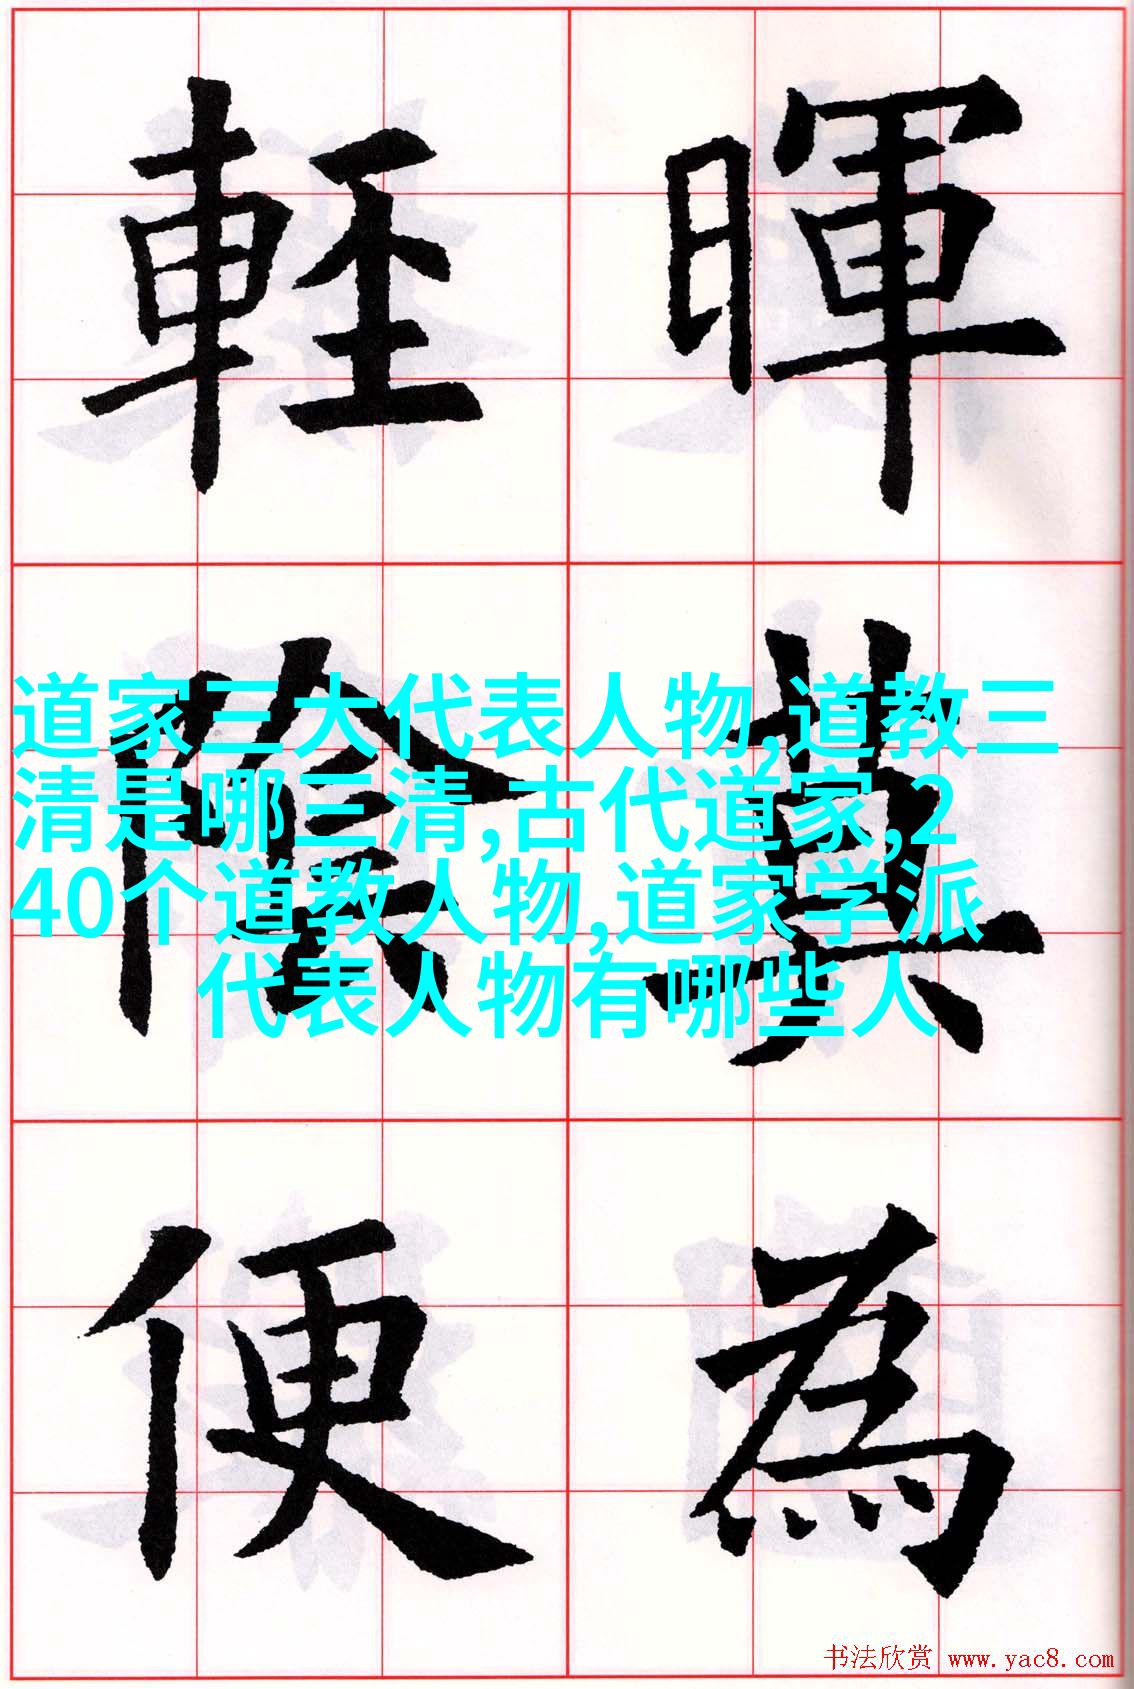 暉莫為
輕陰便
道家三大代表人物,道教三
清是哪三清,古代道家,2
40个道教人物,道家学派
代表人物有哪些人
书法欣赏 www.yac8.com